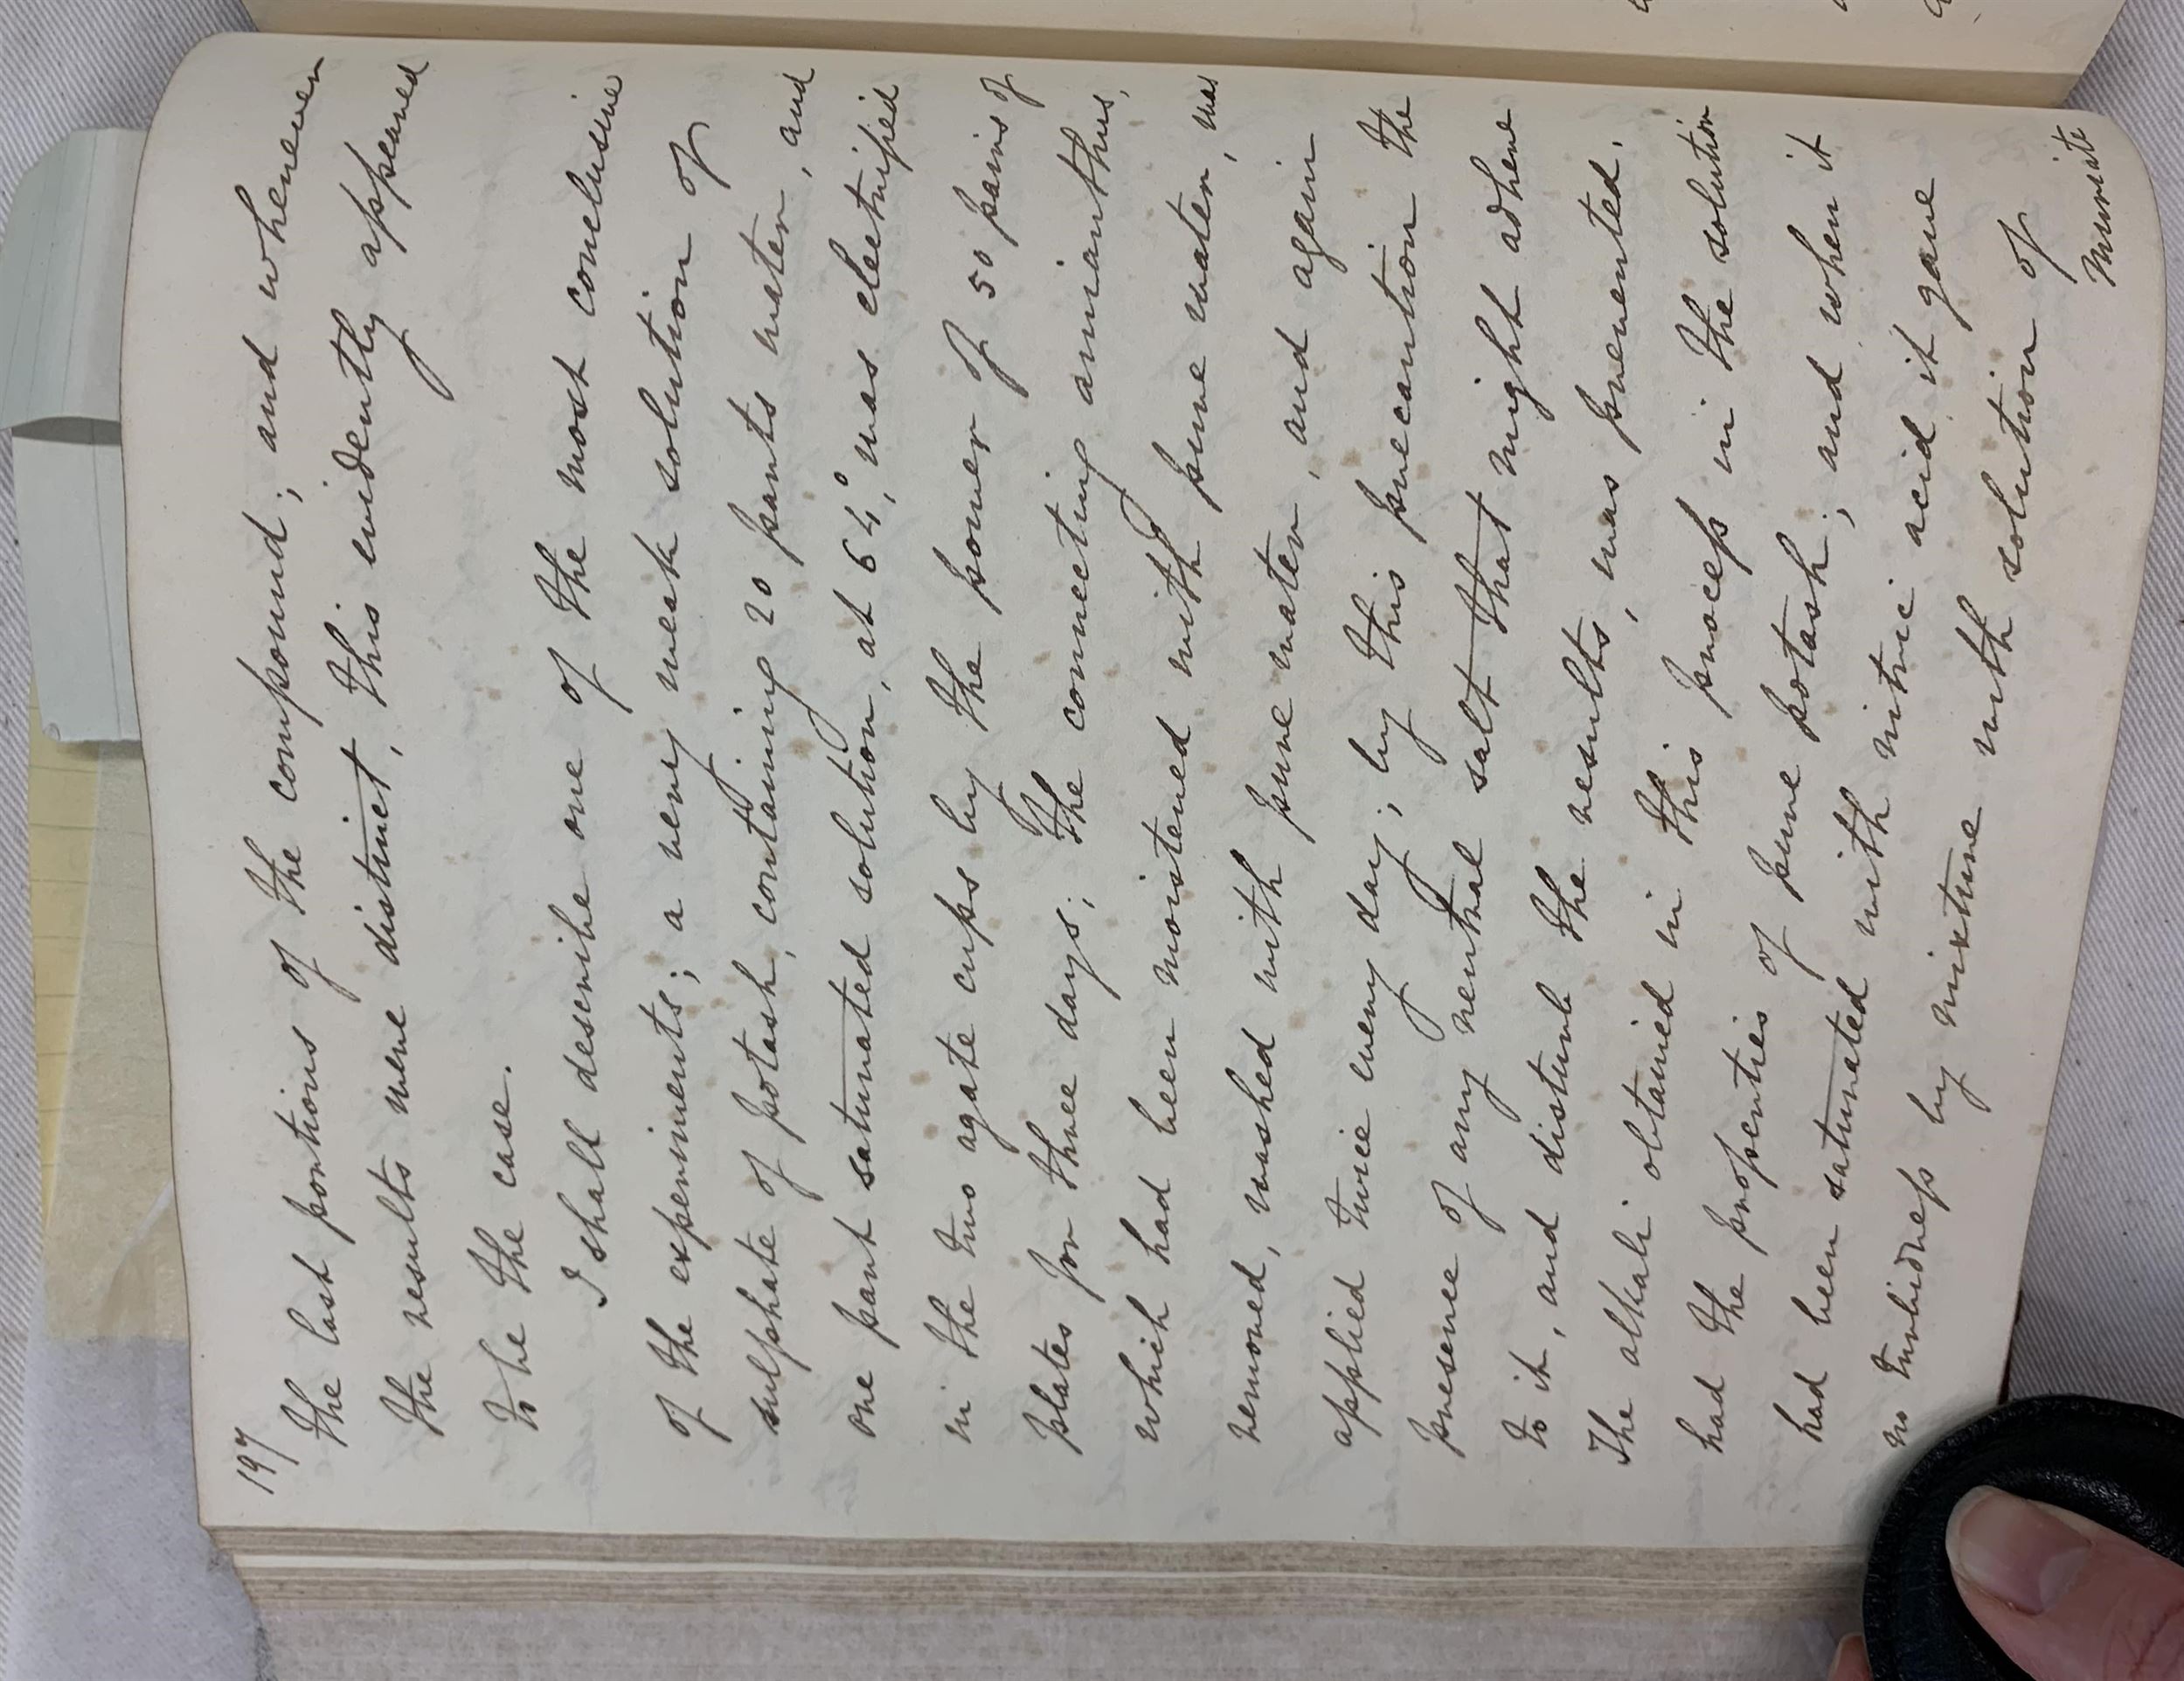 197
the last portions of the compound; and whenever
the results were distinct, this evidently appeared
to be the case.
I shall describe one of the most conclusive
of the experiments; a very weak solution of
sulphate of potash, containing 20 parts water, and
one part saturated solution, at 64°, was electrified
in the two agate cups by the power of 50 pairs of
plates for three days; the connecting amianthus,
which had been moistened with pure water, was
removed, washed with pure water, and again
applied twice every day; by this precaution the
presence of any neutral salt that might adhere
to it, and disturb the results, was prevented.
The alkali obtained in this process in the solution
had the properties of pure potash; and when it
had been saturated with nitric acid, it gave
no turbidness by mixture with solution of
muriate